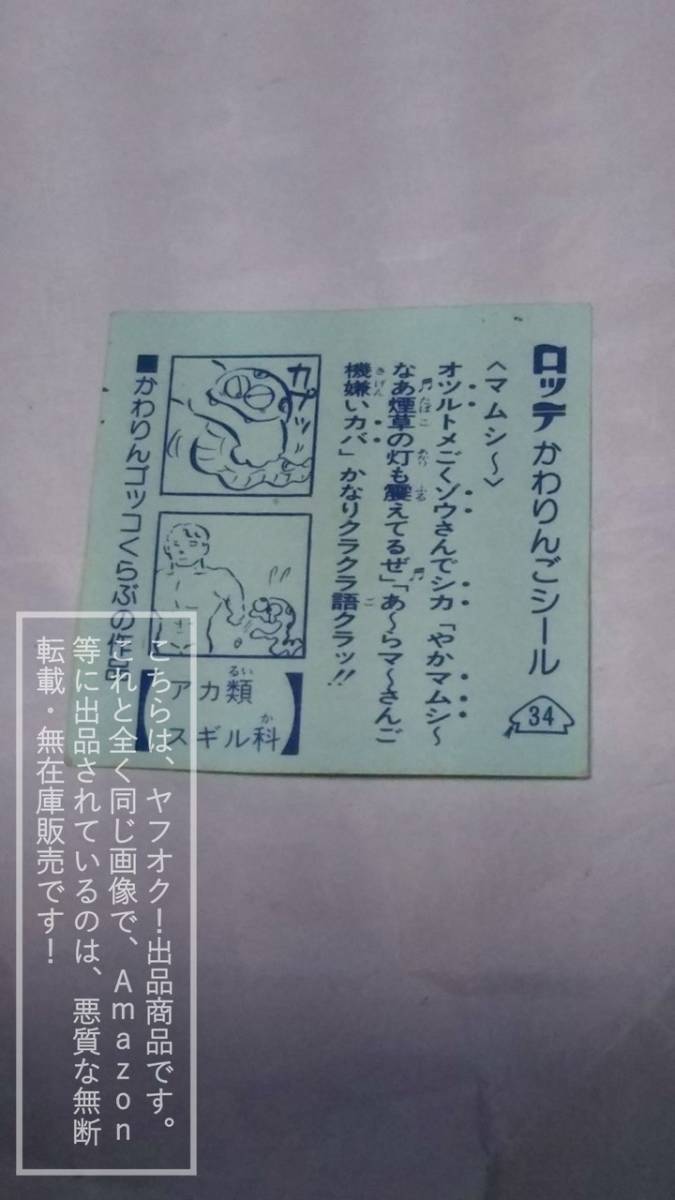 ロッテ かわりんごシール
34
〈マムシ〜〉
オツルトメごくゾウさんでシカ「やかマムシ〜
なあ煙草の灯も震えてるぜ」「あ〜らマ〜さんご
機嫌いカバ」かなりクラクラ語クラッ!!
たばこ
あかり
ふる
きげん
ご
カプッ
アカ類
るい
スギル科
か
■かわりんゴッコくらぶの作品
こちらは、ヤフオク！出品商品です。
これと全く同じ画像で、Amazon
等に出品されているのは、悪質な無断
転載・無在庫販売です！